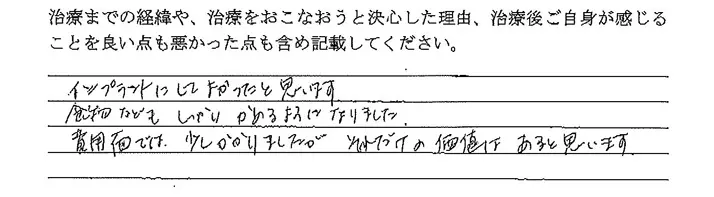 治療までの経緯や、治療をおこなおうと決心した理由、治療後ご自身が感じる
ことを良い点も悪かった点も含め記載してください。
インプラントにしてよかったと思います
食物なども しっかり かめるようになりました
費用面では 少しかかりましたが それだけの 価値は あると思います